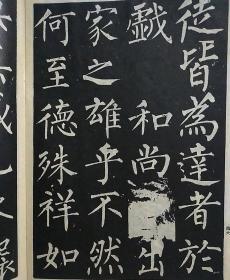 徒皆為達者於
戱和尚出
家之雄乎不然
何至德殊祥如